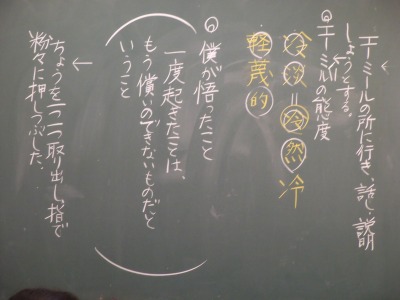 エーミールの所に行き、話し、説明
しようとする。
◎エーミールの態度
冷淡=冷然 冷
軽蔑的
◎僕が悟ったこと
一度起きたことは、
もう償いのできないものだと
いうこと
ちょうを一つ一つ取り出し、指で
粉々に押しつぶした。